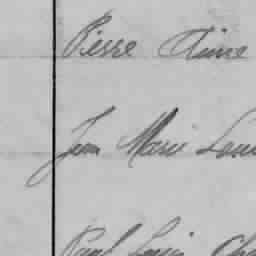 Pierre Aimé
Jean Marie Loui
Paul Louis Cha